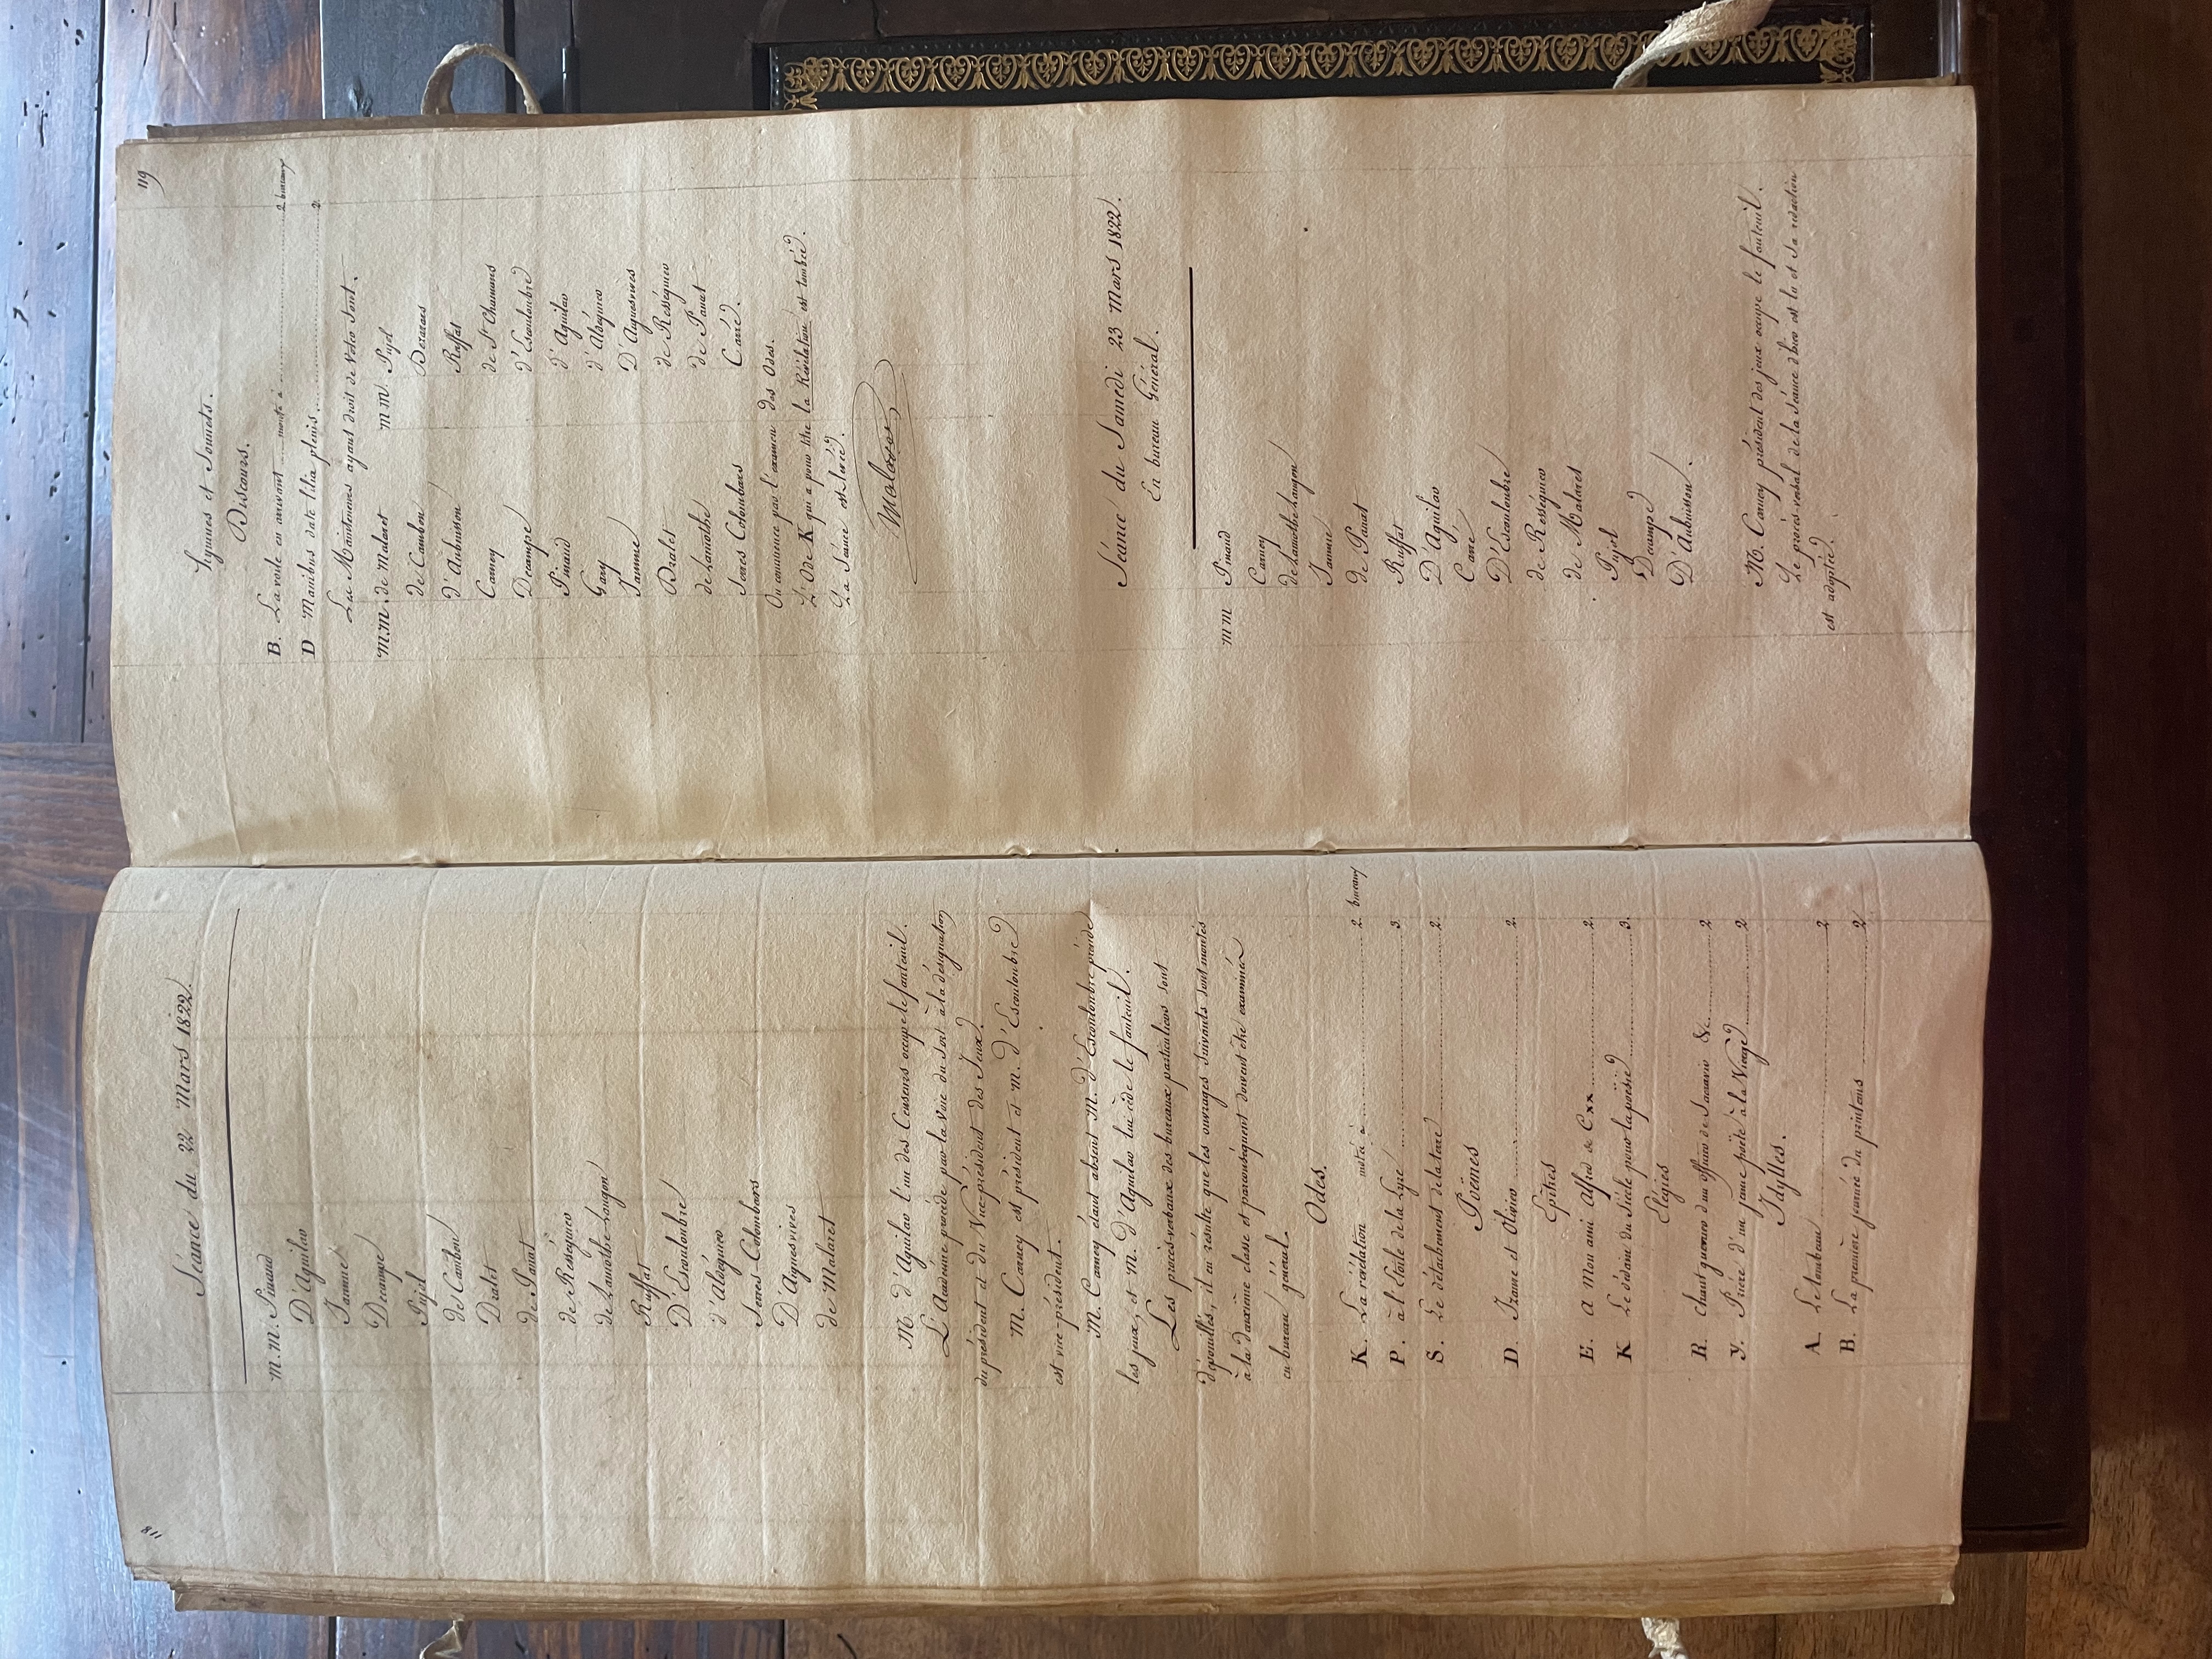 118
Séance du 22 Mars 1822.
M.M. Pinaud
D'Aguilar
Jamme
Decampe
Pujol
de Cambon
Dralet
de Panat
de Rességuier
de Lamothe-Langon
Ruffat
D'Escouloubre
d'Aldéguier
Serres-Colombars
D'Aiguesvives
de Malaret
M. d'Aguilar l'un des Censeurs occupe le fauteuil.
L'Académie procède par la voie du sort à la désignation
du président et du Vice-président des Jeux.
M. Carney est président et M. d'Escouloubre
est vice-président.
M. Carney étant absent M. d'Escouloubre préside
les jeux, et M. d'Aguilar lui cède le fauteuil.
Les procès-verbaux des bureaux particuliers sont
dépouillés, il en résulte que les ouvrages suivants sont montés
à la deuxième classe et par conséquent doivent être examinés
en bureau général.
Odes.
K. La révélation monté à 2 bureaux
P. à l'Etoile de la Lyre 3.
S. Le détachement de la terre 2.
Poëmes
D. Irame et Olivier 2.
Epitres
E. a Mon ami Alfred de C.xx 2.
K Le dédain du Siècle pour la poësie 3.
Elégies
R. Chant guerrier d'un officier de Souvarow &c. 2
Y. Prière d'un jeune poëte à la Vierge 2
Idylles.
A. Le tombeau 2
B. La première journée du printems 2
119
Hymnes et Sonnets.
Discours.
B. La voile en arrivant monté à 2 bureaux
D Manibus date lilia plenis. 2.
Les Mainteneurs ayant droit de Voter Sont.
M.M. de Malaret M M. Pujol
de Cambon Desazars
d'Aubuisson Ruffat
Carney de St Chamans
Decampe d'Escouloubre
Pinaud d'Aguilar
Gary d'Aldéguier
Jamme D'Aiguesvives
Dralet de Rességuier
de Lamothe de Panat
Serres Colombars Carré.
On commence par l'examen des Odes.
L'Ode K qui a pour titre la Révélation est tombée.
La Séance est levée.
Malaret
Séance du Samedi 23 Mars 1822.
En bureau Général.
M M Pinaud
Carney
de Lamothe-Langon
Jamme
de Panat
Ruffat
D'Aguilar
Carré
D'Escouloubre
de Rességuier
de Malaret
Pujol
Decampe
D'Aubuisson.
M. Carney président des jeux occupe le fauteuil.
Le procès-verbal de la Séance d'hier est lu et sa rédaction
est adoptée.